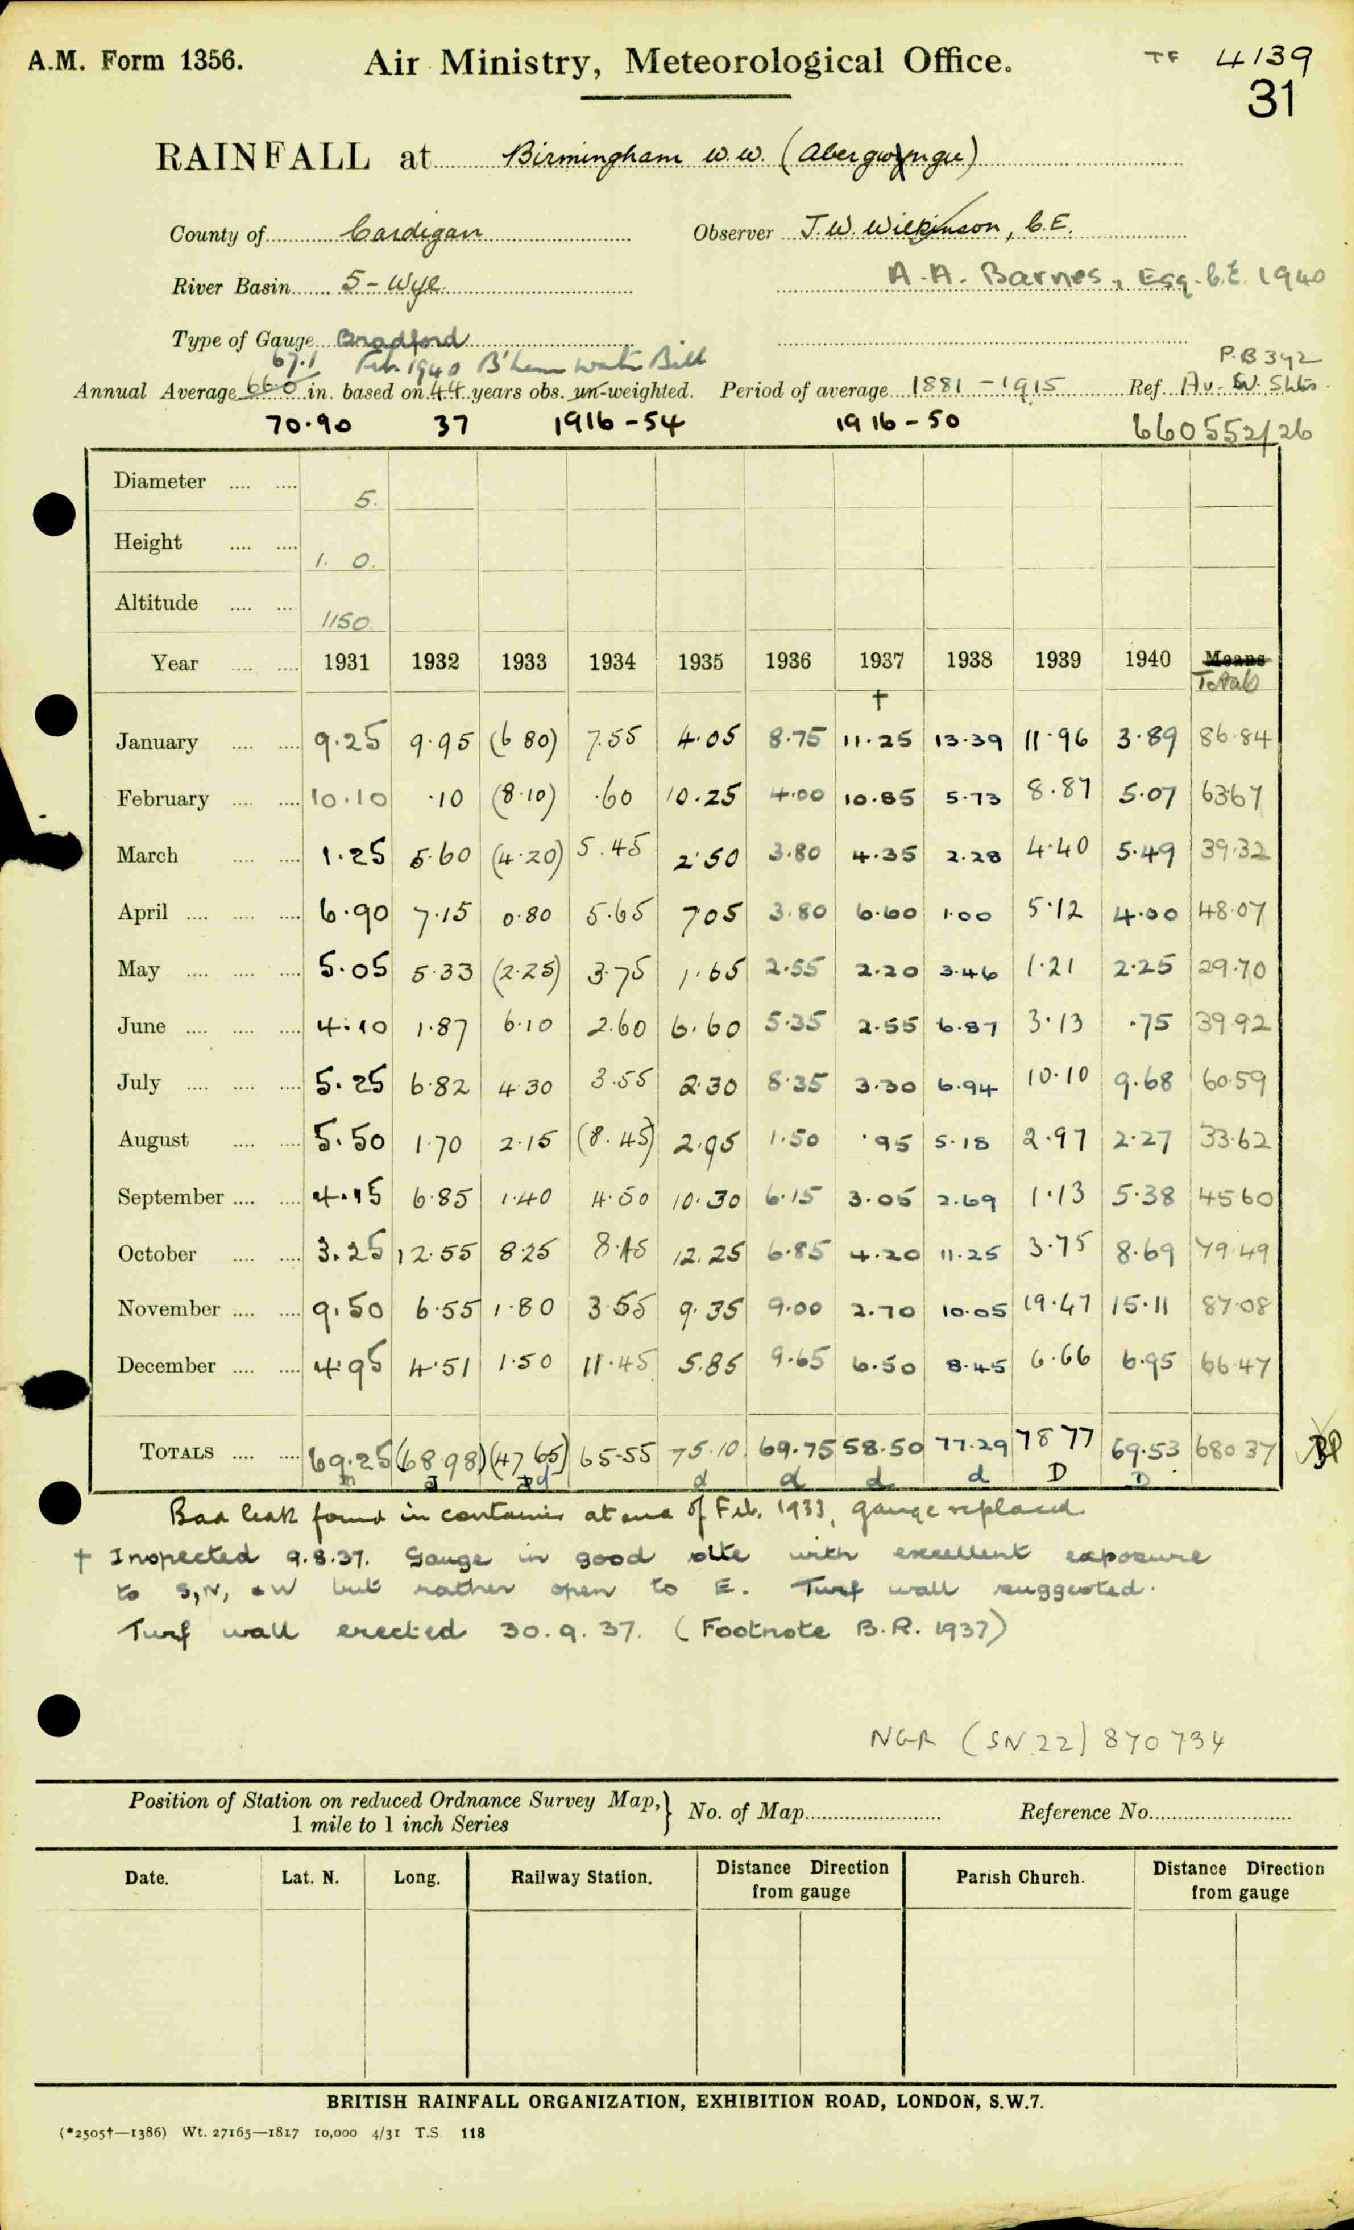 A.M. Form 1356. Air Ministry, Meteorological Office. TF 4139
31
RAINFALL at Birmingham W.W. (Abergwyngu)
County of Cardigan Observer J.W. Wilkinson, C.E.
River Basin 5 - Wye A.A. Barnes, Esq. C.E. 1940
Type of Gauge Bradford
67.1 Feb 1940 B'ham Water Bill P.B 392
Annual Average 66.0 in. based on 44 years obs. un-weighted. Period of average 1881 - 1915 Ref. Av. W. Shts.
70.90 37 1916 - 54 1916 - 50 660552/26
Diameter .... .... 5.
Height .... .... 1. 0.
Altitude .... .... 1150
Year .... .... 1931 1932 1933 1934 1935 1936 1937 1938 1939 1940 Means
† Totals
January .... .... 9.25 9.95 (6 80) 7.55 4.05 8.75 11.25 13.39 11.96 3.89 86.84
February .... .... 10.10 .10 (8.10) .60 10.25 4.00 10.85 5.73 8.87 5.07 63.67
March .... .... 1.25 5.60 (4.20) 5.45 2.50 3.80 4.35 2.28 4.40 5.49 39.32
April .... .... .... 6.90 7.15 0.80 5.65 705 3.80 6.60 1.00 5.12 4.00 48.07
May .... .... .... 5.05 5.33 (2.25) 3.75 1.65 2.55 2.20 3.46 1.21 2.25 29.70
June .... .... .... 4.10 1.87 6.10 2.60 6.60 5.35 2.55 6.87 3.13 .75 39.92
July .... .... .... 5.25 6.82 4.30 3.55 2.30 8.35 3.30 6.94 10.10 9.68 60.59
August .... .... 5.50 1.70 2.15 (8.45) 2.95 1.50 .95 5.18 2.97 2.27 33.62
September .... .... 4.15 6.85 1.40 4.50 10.30 6.15 3.05 2.69 1.13 5.38 45 60
October .... .... 3.25 12.55 8.25 8.45 12.25 6.85 4.20 11.25 3.75 8.69 79.49
November .... .... 9.50 6.55 1.80 3.55 9.35 9.00 2.70 10.05 19.47 15.11 87.08
December .... .... 4.95 4.51 1.50 11.45 5.85 9.65 6.50 8.45 6.66 6.95 66.47
TOTALS .... .... 69.25 (68.98) (47 65) 65.55 75.10 69.75 58.50 77.29 78 77 69.53 680 37
d d d d D D
Bad leak found in container at end of Feb. 1933, gauge replaced.
† Inspected 9.8.37. Gauge in good site with excellent exposure
to S, N, & W but rather open to E. Turf wall suggested.
Turf wall erected 30.9.37. (Footnote B.R. 1937)
NGR (SN 22) 870 734
Position of Station on reduced Ordnance Survey Map,} No. of Map Reference No.
1 mile to 1 inch Series
Date. Lat. N. Long. Railway Station. Distance Direction from gauge Parish Church. Distance Direction from gauge
BRITISH RAINFALL ORGANIZATION, EXHIBITION ROAD, LONDON, S.W.7.
(*2505†—1386) Wt. 27165—1817 10,000 4/31 T.S. 118